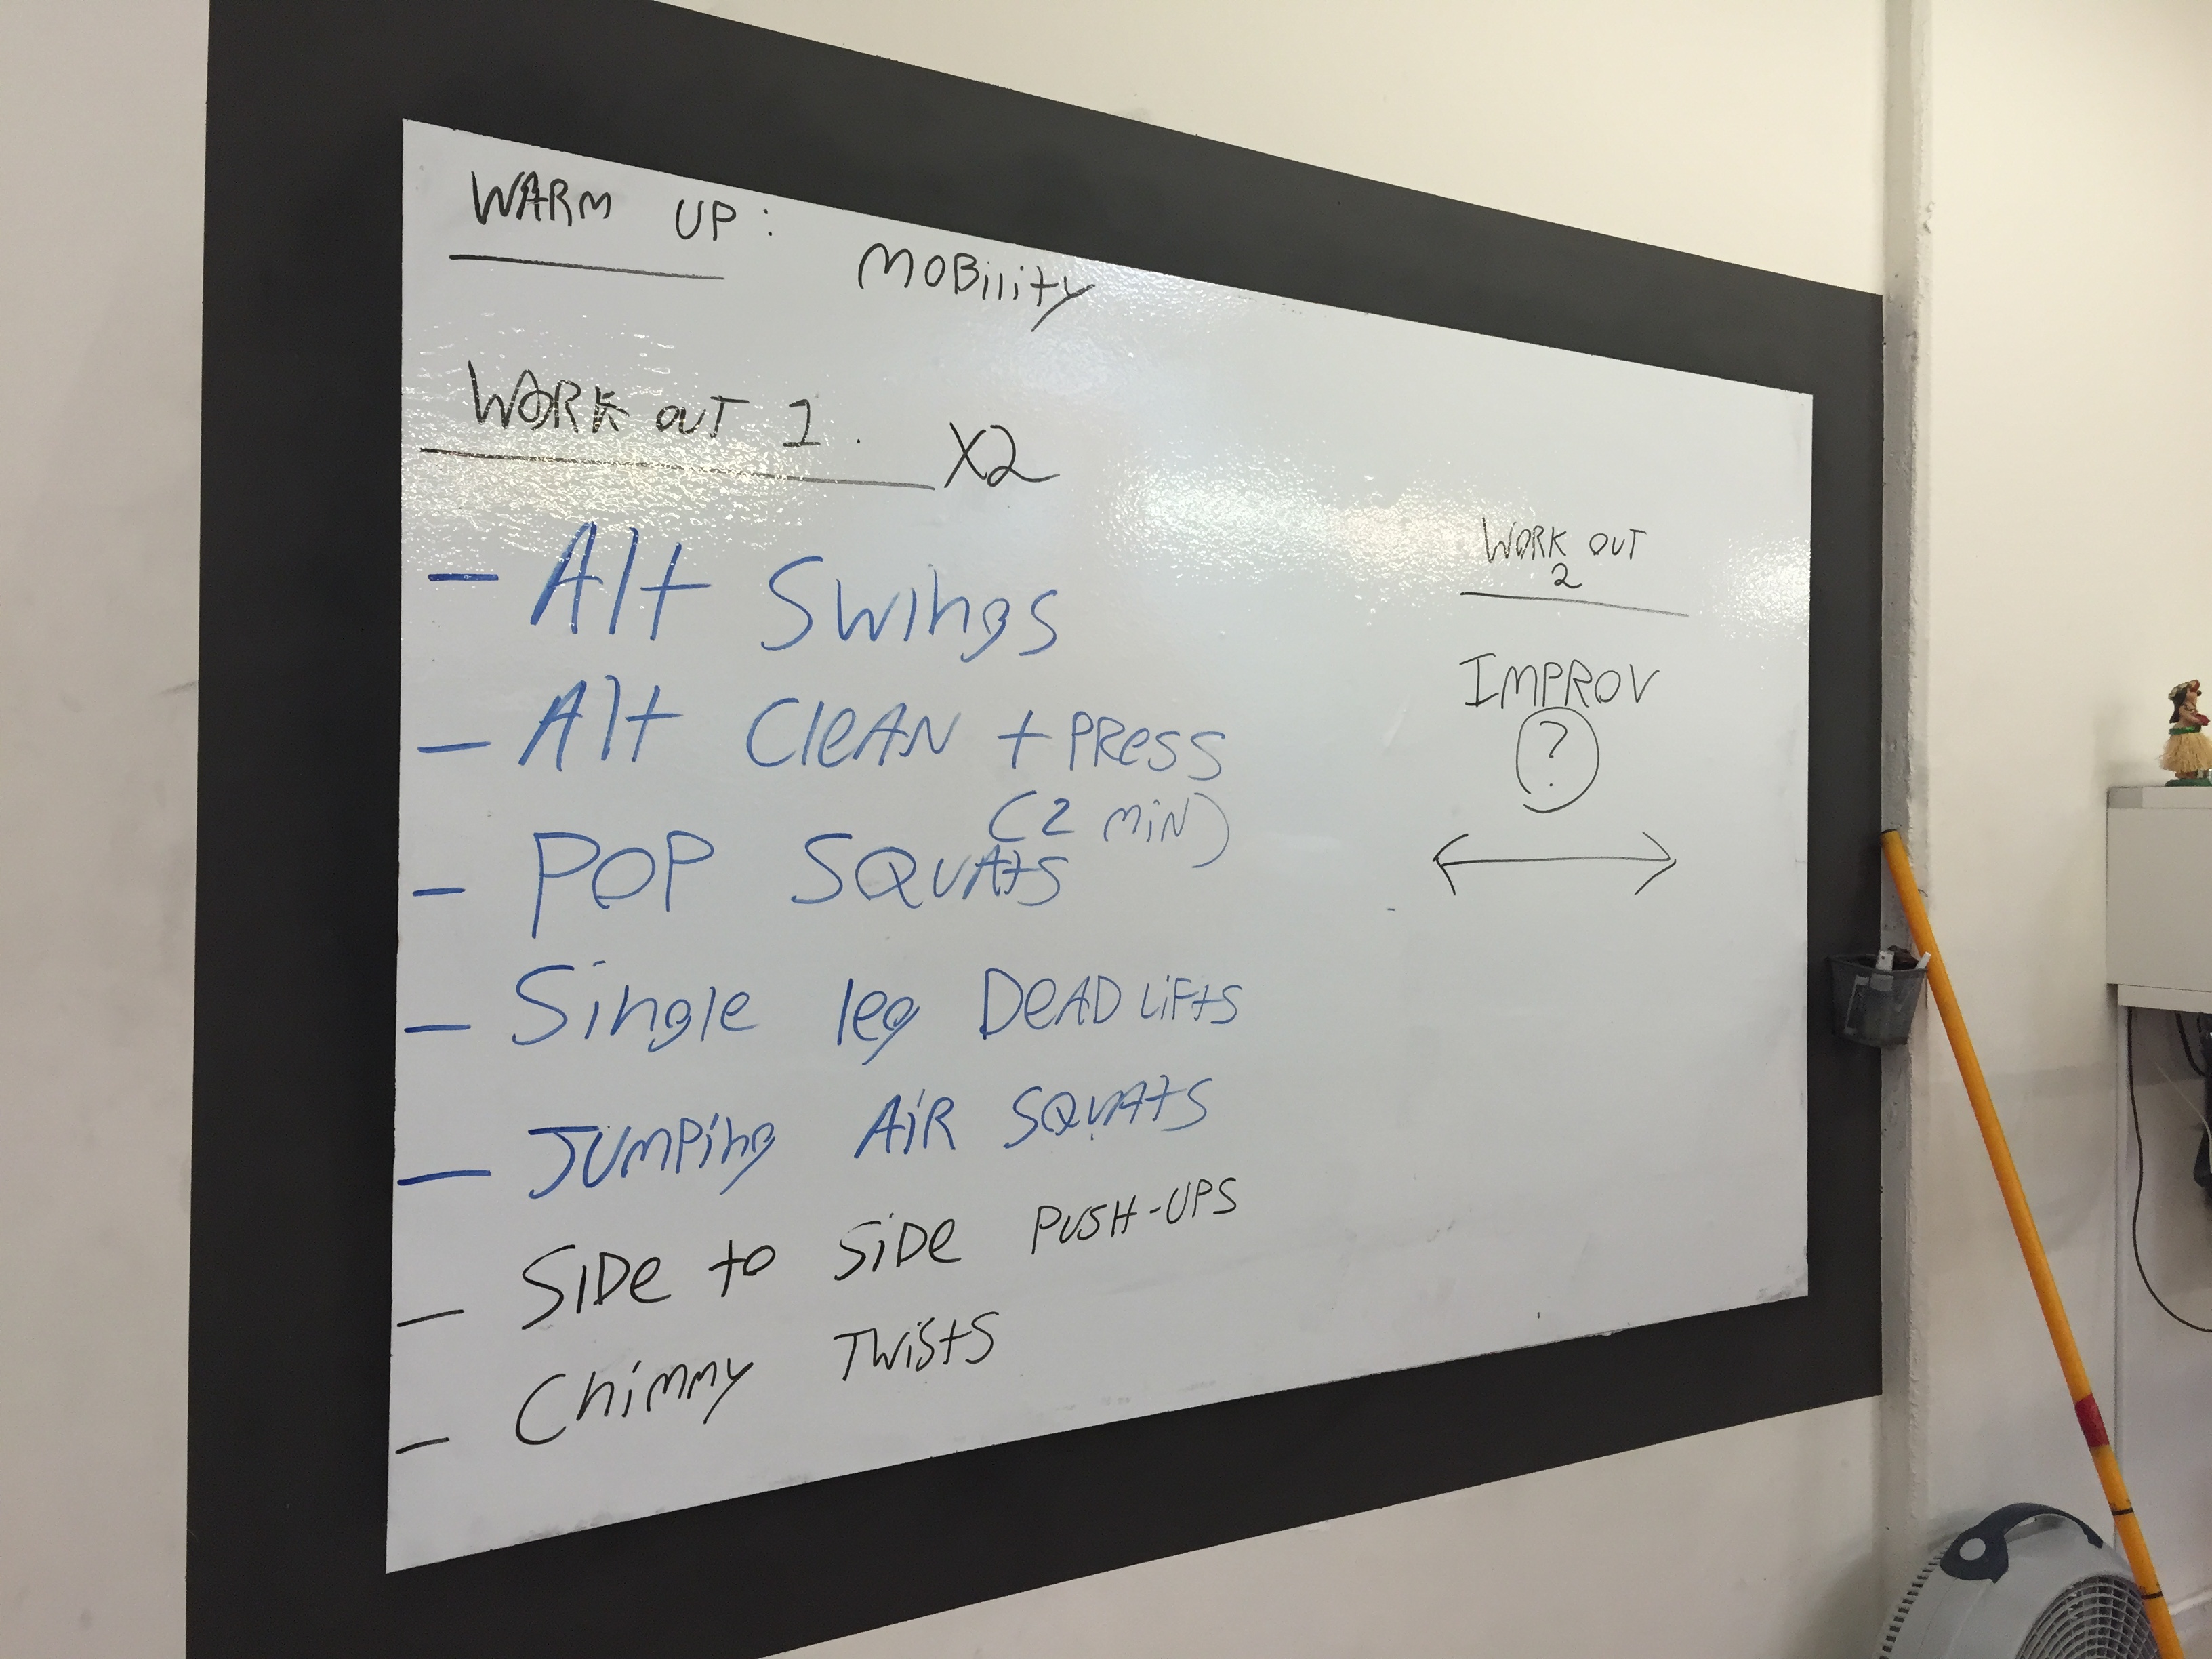 WARM UP: MOBility
WORK OUT 1. X2
- Alt Swings
- Alt CleAN + PRess
(2 MiN)
- POP SQUAts
- Single leg DeAD LiFts
- JUMPing AiR SQUAts
- SiDe to SiDe PUSH-UPS
- Chimmy Twists
WORK OUT
2
IMPROV
?